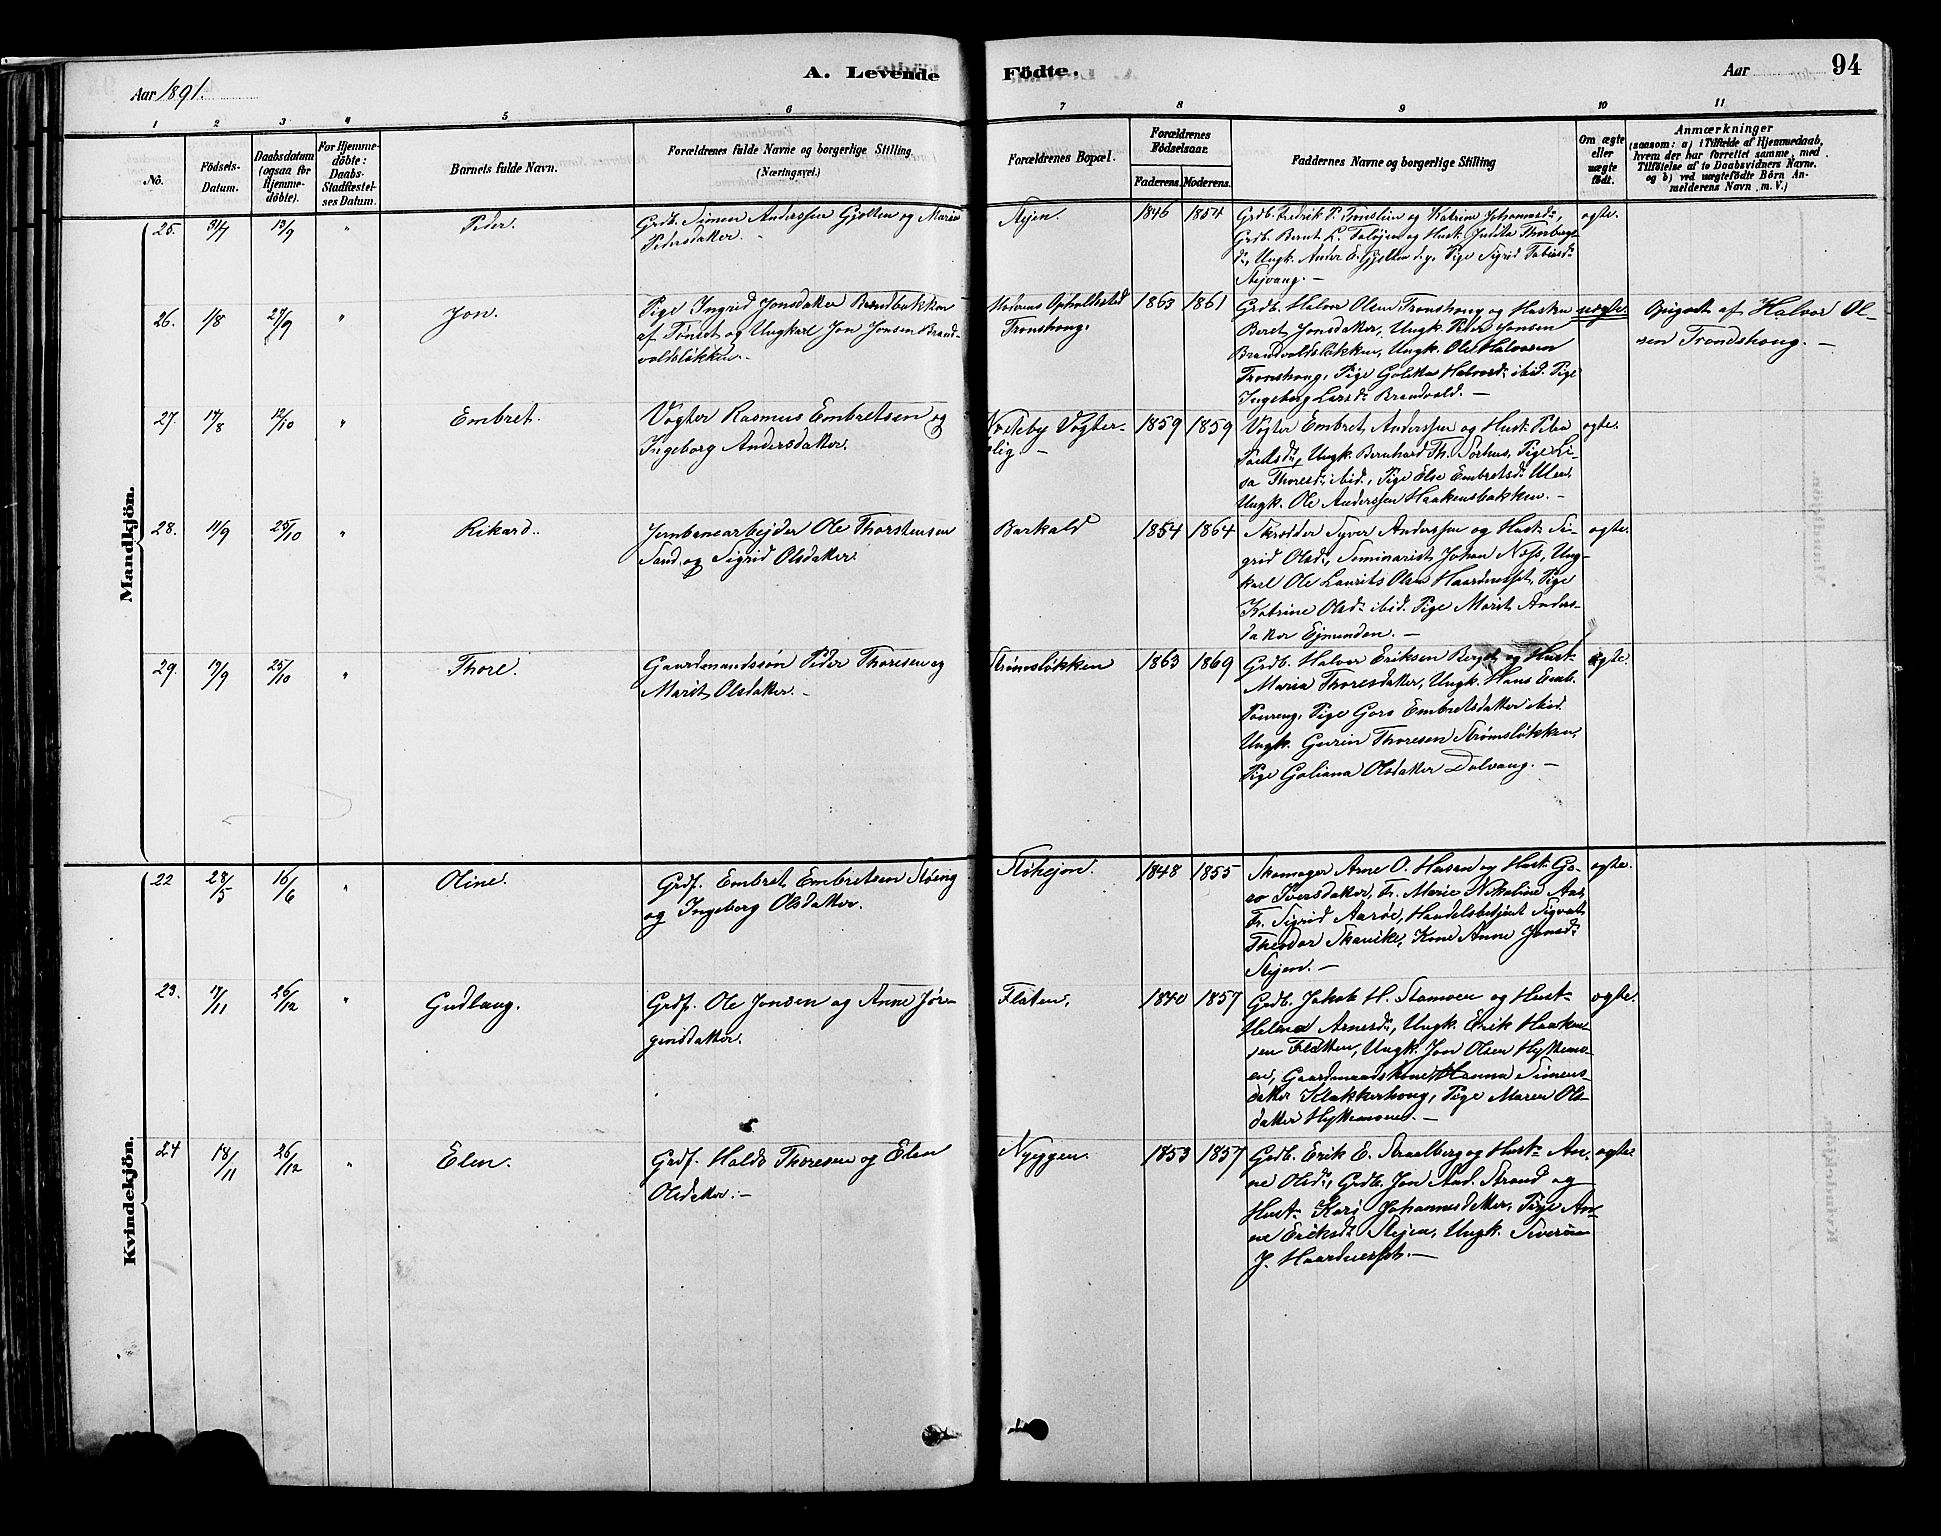 A. Levende
Födte.
Aar
94
Aar 1891.
1
2
3
4
5
6
7
8
9
10
11
No.
Födsels-
Datum.
Daabsdatum
(ogsaa for
Hjemme-
döbte).
For Hjemme-
döbte:
Daabs-
Stadfæstel-
ses Datum.
Barnets fulde Navn.
Forældrenes fulde Navne og borgerlige Stilling
(Næringsvei.)
Forældrenes Bopæl.
Forældrenes
Födselsaar.
Faderens.
Moderens.
Faddernes Navne og borgerlige Stilling
Om ægte
eller
uægte
födt.
Anmærkninger
(saasom: a) i Tilfælde af Hjemmedaab,
hvem der har forrettet samme, med
Tilföielse af to Daabsvidners Navne.
og b) ved uægtefödte Börn An-
melderens Navn m. V.)
Mandkjön.
25.
31/7
13/9
"
Peder.
Grdb. Simen Anderssen Gjelten og Marie
Pedersdatter.
Stejen.
1846
1854
Grdb. Fredrik P. Tronslien og Katrine Johannesd.,
Grdb. Bernt L. og Hust. Judita Thorbergs
d., Ungk. Ander E. Gjelten d.y. Pige Sigrid Tobiasd.
Stejvang. —
ægte.
26.
1/8
27/9
"
Jon.
Pige Ingrid Jonsdatter Brandbakken
af Tønset og Ungkarl Jon Jonsen Brand-
voldsløkken. —
Moderens Opholdssted
Tronshoug.
1863
1861
Grdb. Halvor Olsen Tronshoug og Hustru
Beret Jonsdatter, Ungk. Peder Jonsen
Brandvoldsløkken, Ungk. Ole Halvorsen
Tronshoug, Pige Goletta Halvorsd. ibid. Pige
Ingeborg Larsd. Brandvold. —
uægte.
Opgivet af Halvor Ol-
sen Trondshoug. —
27.
17/8
12/10
"
Embret.
Vogter Rasmus Embretsen og
Ingeborg Andersdatter.
Nesteby Vogter-
bolig. —
1859
1859
Vogter Embret Anderssen og Hust.
Poulsd., Ungk. Bernhard Th. Sørhus, Pige Li-
sa Thoresd. ibid., Pige Else Embretsd. Ulen,
Ungk. Ole Anderssen Haakensbakken. —
ægte.
28.
11/9
25/10
"
Rikard.
Jernbanearbejder Ole Thorstensen
Sand og Sigrid Olsdatter.
Barkald
1854
1864
Skrædder Syver Anderssen og Hust. Si-
grid Olsd., Seminarist Johan Næss, Ung-
karl Ole Laurits Olsen Haardnesset, Pige
Katrine Olsd. ibid. Pige Marit Anders-
datter Ejmunden. —
ægte.
29.
17/9
25/10
"
Thore.
Gaardmandssøn Peder Thoresen og
Marit Olsdatter. —
Strømsløkken
1863
1869
Grdb. Halvor Eriksen Berget og Hust.
Maria Thoresdatter, Ungk. Hans Emb.
Poureng, Pige Goro Embretsdatter ibid.
Ungk. Gurin Thoresen Strømsløkken,
Pige Goliana Olsdatter Dalvang. —
ægte.
Kvindekjön.
22
28/5
16/6
"
Oline.
Grdf. Embret Embretsen Støeng
og Ingeborg Olsdatter.
Støkejen.
1848
1855
Skomager Arne O. Husen og Hust. Go-
ro Iversdatter, Fr. Marie Nikoline Aas,
Fr. Sigrid Aarøe, Handelsbetjent Sigvat
Theodor Skavike, Kone Anne Jonsd.
Stejen. —
ægte.
23.
17/11
26/12
"
Gudlaug.
Grdf. Ole Jonsen og Anne Jør-
gensdatter.
Flaten,
1840
1857
Grdb. Jakob H. Stamoen og Hust.
Helena Arnesd., Ungk. Erik Haakon-
sen Flatten, Ungk. Jon Olsen Hyttemo-
en, Gaardmandskone Hanna Simens-
datter Klokkerhoug, Pige Maren Ols-
datter Hyttemoen. —
ægte.
24
18/11
26/12
"
Elen.
Grdf. Haldo Thoresen og Elen
Olsdatter. —
Nyeggen.
1853
1857
Grdb. Erik E. Straalberg og Hust. An-
ne Olsd., Grdb. Jon And. Strand og
Hust. Kari Johannesdatter, Pige An-
ne Eriksd. Stejen, Ungk. Siverin
J. Haardnesset. —
ægte.